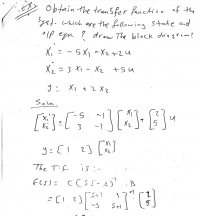 Obtain the transfer function of the
syst. which are the following state and
o/p eqn ? draw the block diagram!
ẋ₁ = -5x₁ - x₂ + 2u
ẋ₂ = 3x₁ - x₂ + 5u
y = x₁ + 2x₂
Soln.
[ẋ₁ ẋ₂] = [-5 -1 3 -1] [x₁ x₂] + [2 5] u
y = [1 2] [x₁ x₂]
The T.F. is :-
G(s) = C(SI-A)⁻¹ B
= [1 2] [s+5 1 -3 s+1]⁻¹ [2 5]